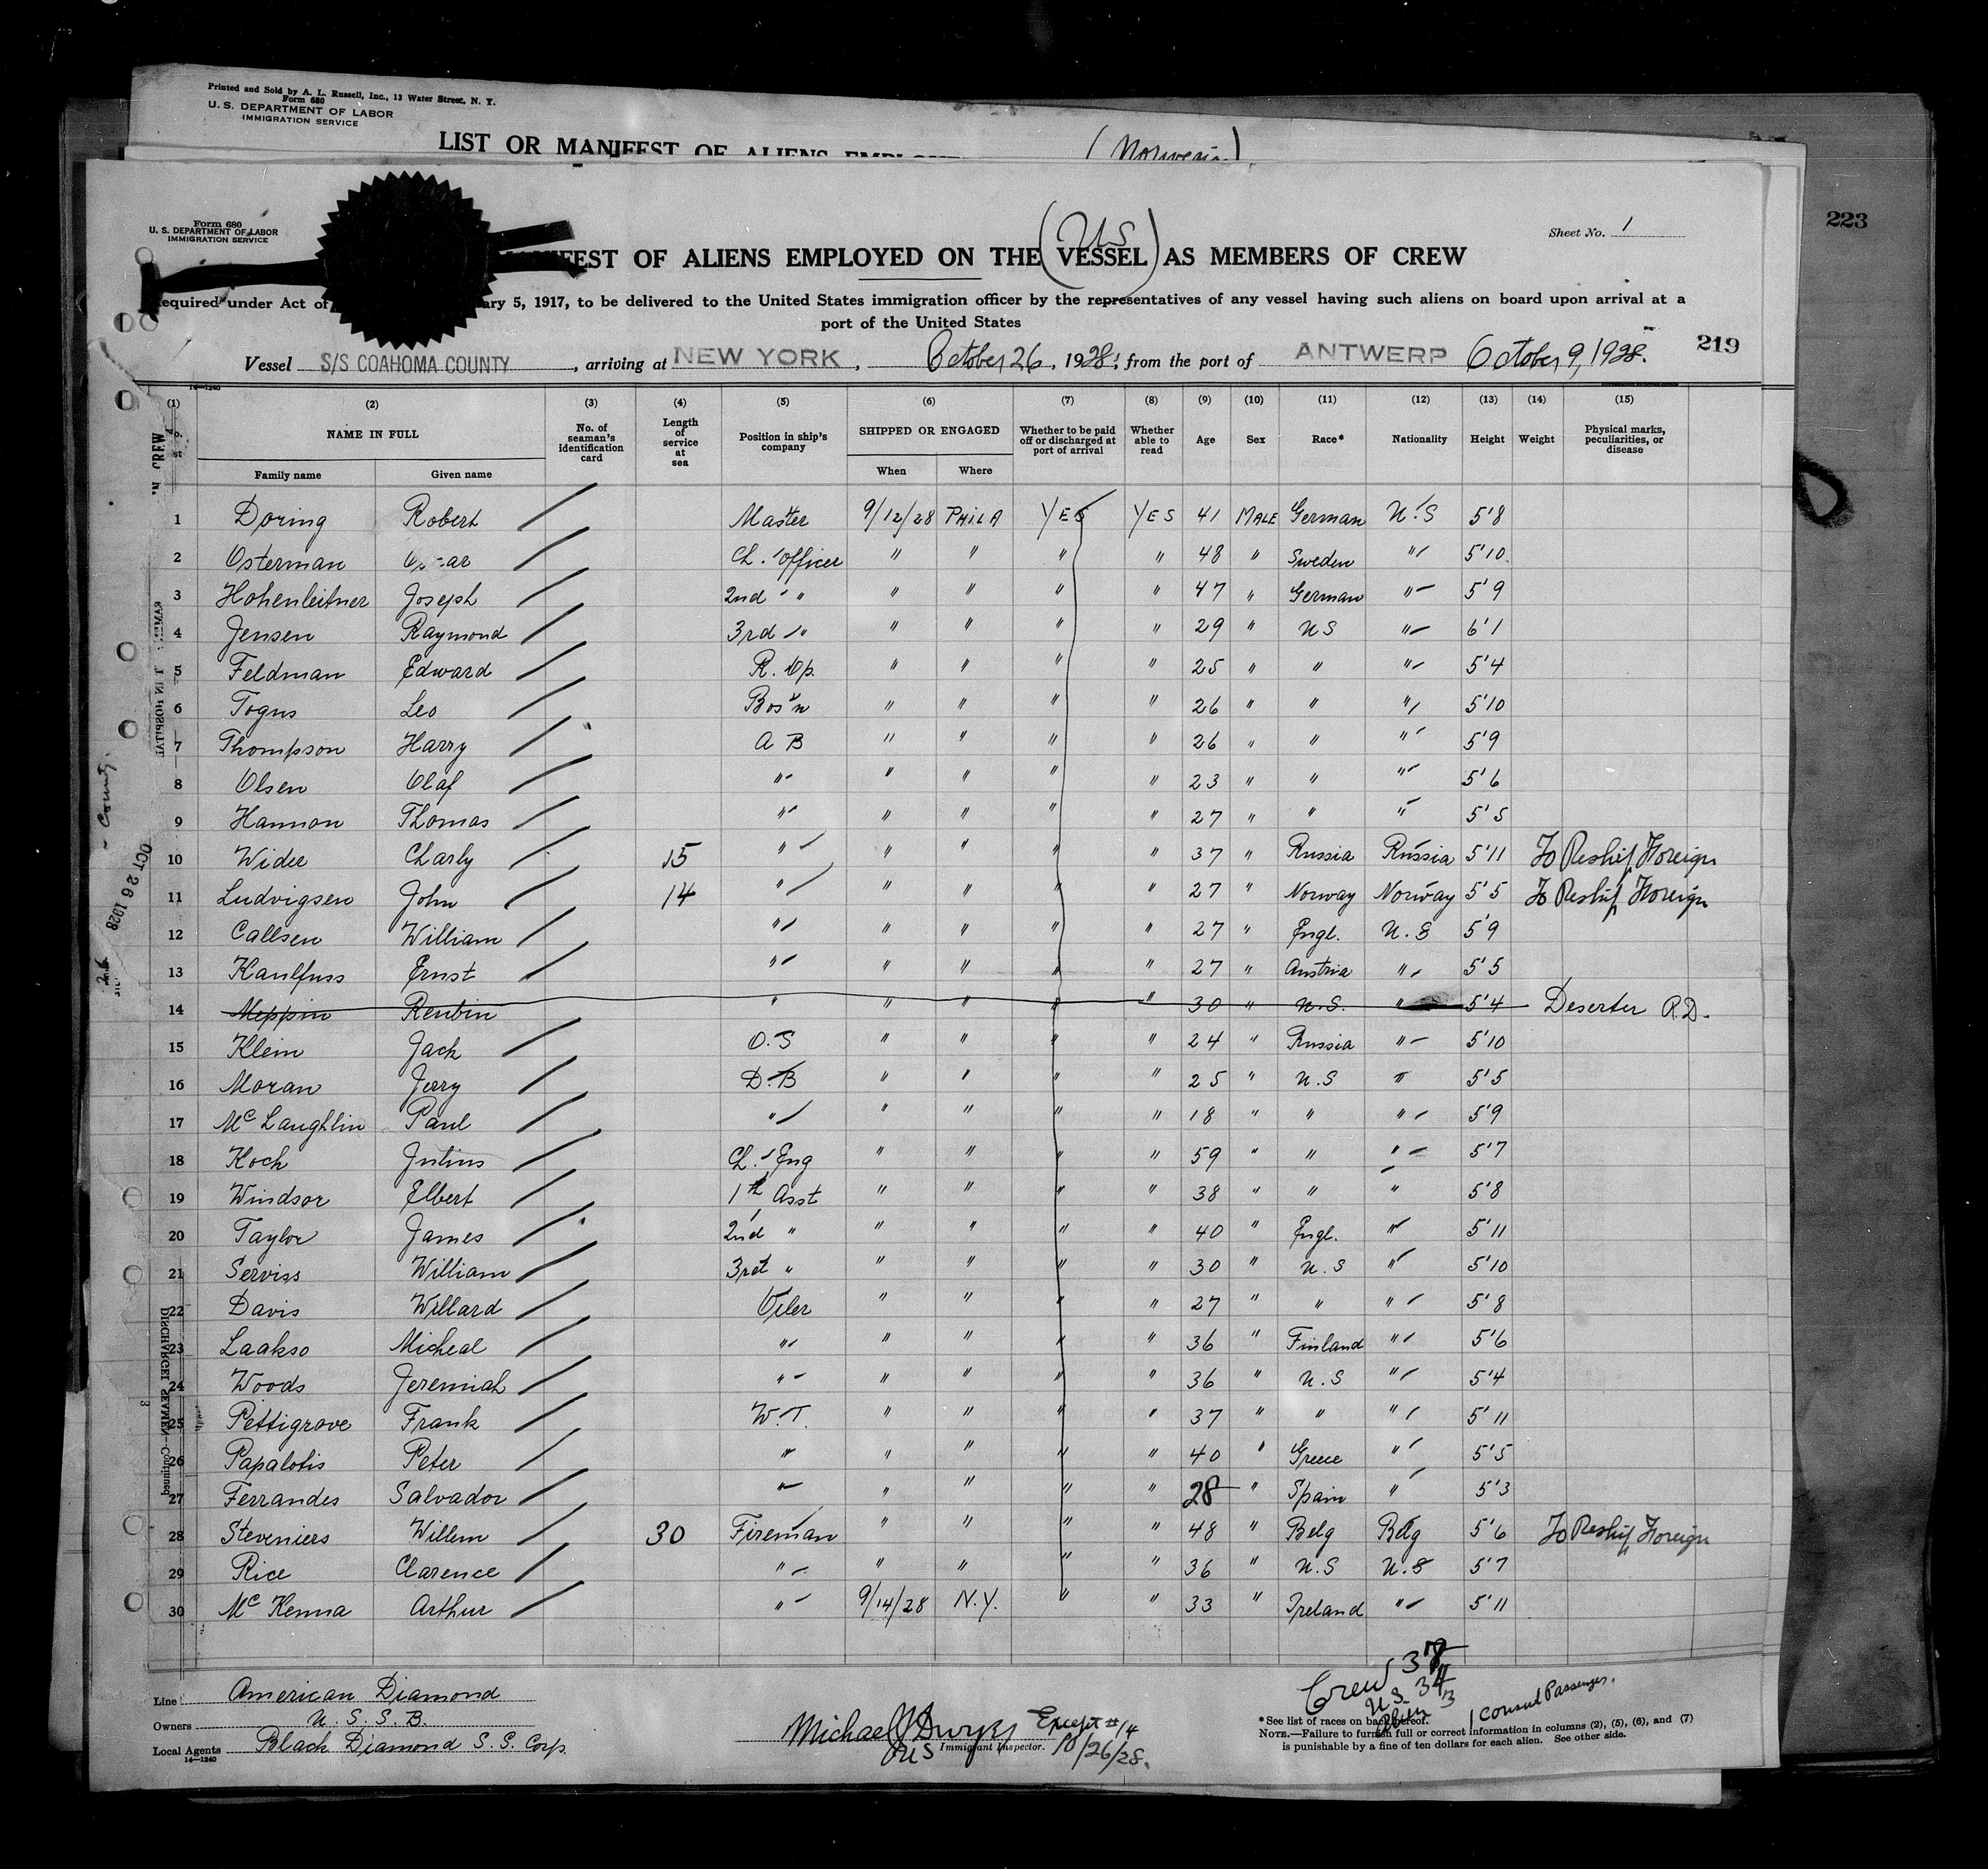 Printed and Sold by A. L. Russell, Inc., 13 Water Street, N. Y.
Form 680
U. S. DEPARTMENT OF LABOR
IMMIGRATION SERVICE
LIST OR MANIFEST OF ALIENS
223
Form 680
U. S. DEPARTMENT OF LABOR
IMMIGRATION SERVICE
Sheet No. 1
(US)
OF ALIENS EMPLOYED ON THE VESSEL AS MEMBERS OF CREW
equired under Act of ary 5, 1917, to be delivered to the United States immigration officer by the representatives of any vessel having such aliens on board upon arrival at a
port of the United States
219
Vessel S/S COAHOMA COUNTY, arriving at NEW YORK, October 26, 1928, from the port of ANTWERP October 9, 1928.
14—1240
(1) (2) (3) (4) (5) (6) (7) (8) (9) (10) (11) (12) (13) (14) (15)
NAME IN FULL Family name Given name No. of seaman's identification card Length of service at sea Position in ship's company SHIPPED OR ENGAGED When Where Whether to be paid off or discharged at port of arrival Whether able to read Age Sex Race* Nationality Height Weight Physical marks, peculiarities, or disease
1 Doring Robert Master 9/12/28 PHILA YES YES 41 MALE German U.S 5'8
2 Osterman Ch. Officer " " " " 48 " Sweden " 5'10
3 Hohenleitner Joseph 2nd " " " " " 47 " German " 5'9
4 Jensen Raymond 3rd " " " " " 29 " US " 6'1
5 Feldman Edward R. Op. " " " " 25 " " " 5'4
6 Togus Leo Bos'n " " " " 26 " " " 5'10
7 Thompson Harry A B " " " " 26 " " " 5'9
8 Olsen Olaf " " " " " 23 " " " 5'6
9 Hannon Thomas " " " " " 27 " " " 5'5
10 Wider Charly 15 " " " " " 37 " Russia Russia 5'11 To Reship Foreign
11 Ludvigsen John 14 " " " " " 27 " Norway Norway 5'5 To Reship Foreign
12 Callsen William " " " " " 27 " Engl. U.S 5'9
13 Kaulfuss Ernst " " " " " 27 " Austria " 5'5
14 Meppin Reubin " " " " " 30 " U.S. " 5'4 Deserter R.D.
15 Klein Jack O.S " " " " 24 " Russia " 5'10
16 Moran Jerry D.B " " " " 25 " U.S " 5'5
17 McLaughlin Paul " " " " " 18 " " " 5'9
18 Koch Julius Ch. Eng " " " " 59 " " " 5'7
19 Windsor Elbert 1st Asst " " " " 38 " " " 5'8
20 Taylor James 2nd " " " " " 40 " Engl. " 5'11
21 Serviss William 3rd " " " " " 30 " U.S " 5'10
22 Davis Willard Oiler " " " " 27 " " " 5'8
23 Laakso Micheal " " " " " 36 " Finland " 5'6
24 Woods Jeremiah " " " " " 36 " U.S " 5'4
25 Pettigrove Frank W.T. " " " " 37 " " " 5'11
26 Papalotis Peter " " " " " 40 " Greece " 5'5
27 Ferrandes Salvador " " " " " 28 " Spain " 5'3
28 Steveniers Willem 30 Fireman " " " " 48 " Belg Belg 5'6 To Reship Foreign
29 Rice Clarence " " " " " 36 " U.S U.S 5'7
30 McKenna Arthur " 9/14/28 N.Y. " " 33 " Ireland " 5'11
Line American Diamond
Owners U. S. S. B.
Local Agents Black Diamond S. S. Corp.
14—1240
Michael J Dwyer
Immigrant Inspector.
Except #14
10/26/28.
Crew 38
US 34
Alien 3
1 Consul Passenger.
*See list of races on back hereof.
NOTE.—Failure to furnish full or correct information in columns (2), (5), (6), and (7)
is punishable by a fine of ten dollars for each alien. See other side.
County
OCT 26 1928
DISCHARGED SEAMEN—Continued